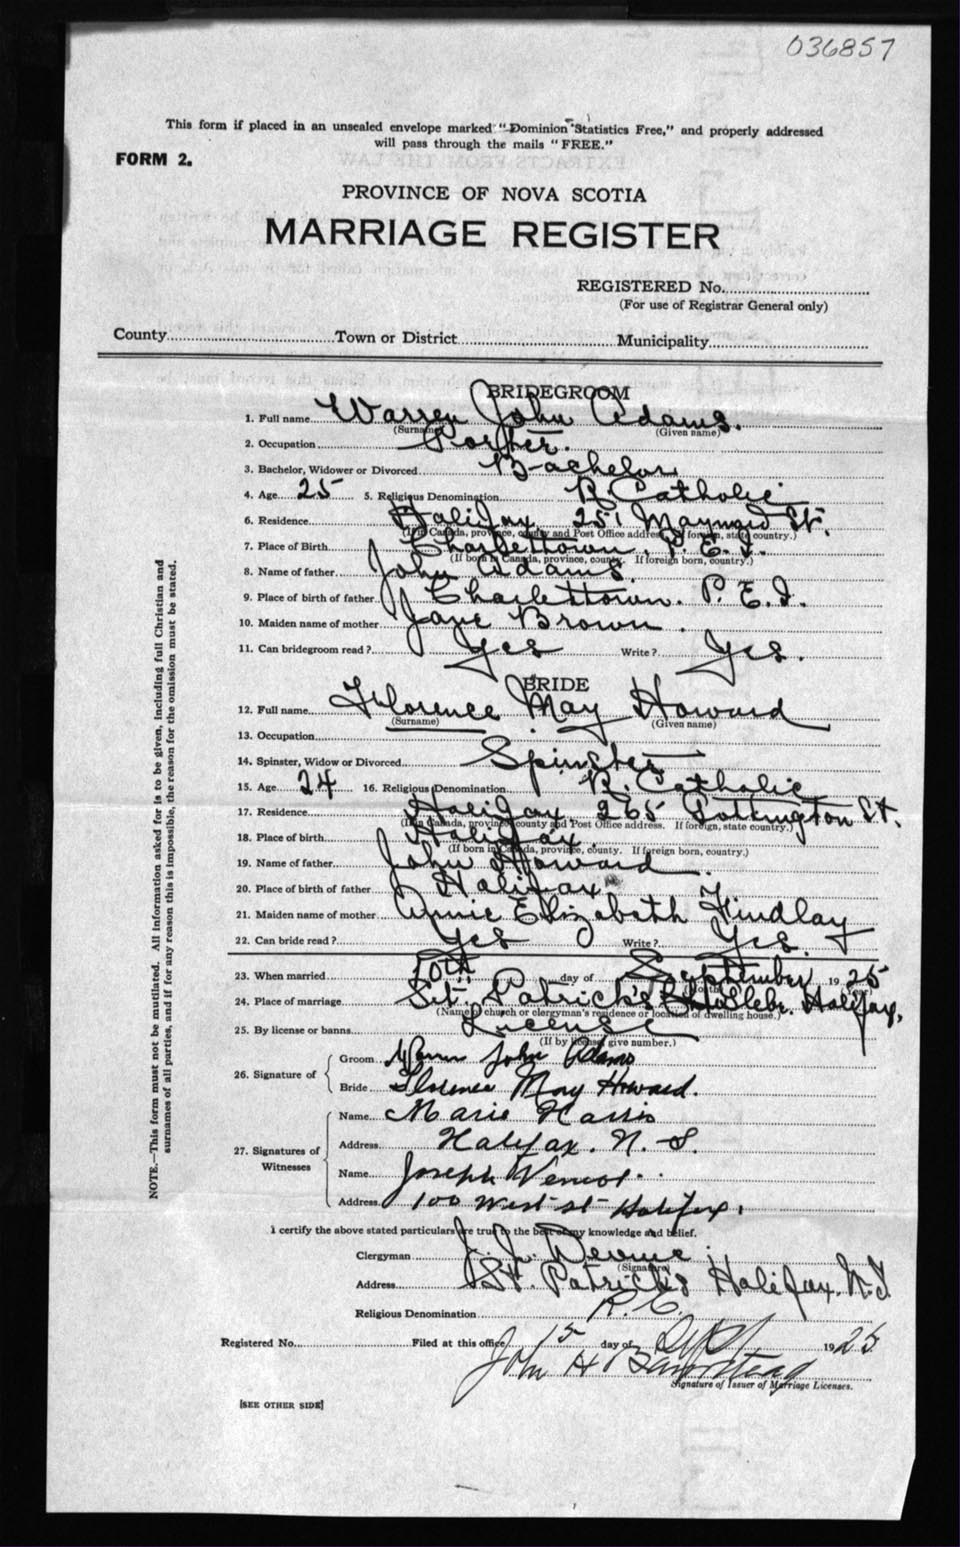 036857
This form if placed in an unsealed envelope marked "Dominion Statistics Free," and properly addressed
will pass through the mails "FREE."
FORM 2.
PROVINCE OF NOVA SCOTIA
MARRIAGE REGISTER
REGISTERED No.
(For use of Registrar General only)
County Town or District Municipality
BRIDEGROOM
1. Full name Warren John Adams.
(Surname) (Given name)
2. Occupation Porter.
3. Bachelor, Widower or Divorced Bachelor
4. Age 25 5. Religious Denomination R. Catholic
6. Residence Halifax 251 Maynard St.
(If in Canada, province, county and Post Office address. If foreign, state country.)
7. Place of Birth Charlettown, P.E.I.
(If born in Canada, province, county. If foreign born, country.)
8. Name of father John Adams.
9. Place of birth of father Charlettown. P.E.I.
10. Maiden name of mother Jane Brown.
11. Can bridegroom read? Yes Write? Yes.
BRIDE
12. Full name Florence May Howard
(Surname) (Given name)
13. Occupation
14. Spinster, Widow or Divorced Spinster
15. Age 24 16. Religious Denomination R. Catholic
17. Residence Halifax 265 St.
(If in Canada, province, county and Post Office address. If foreign, state country.)
18. Place of birth Halifax.
(If born in Canada, province, county. If foreign born, country.)
19. Name of father John Howard.
20. Place of birth of father Halifax
21. Maiden name of mother Annie Elizabeth Findlay
22. Can bride read? Yes Write? Yes.
23. When married 10th day of September 1925
24. Place of marriage St. Patrick's Halifax.
(Name of church or clergyman's residence or location of dwelling house.)
25. By license or banns License
(If by license give number.)
26. Signature of
Groom John Adams
Bride Florence May Howard.
27. Signatures of Witnesses
Name Marie Harris
Address Halifax. N.S.
Name Joseph
Address 100 West St Halifax.
I certify the above stated particulars are true to the best of my knowledge and belief.
Clergyman J. J. Devine.
(Signature)
Address St. Patrick's Halifax. N.S.
Religious Denomination R.C.
Registered No. Filed at this office 15 day of Sept 1925
John H Barnstead
Signature of Issuer of Marriage Licenses.
[SEE OTHER SIDE]
NOTE.—This form must not be mutilated. All information asked for is to be given, including full Christian and
surnames of all parties, and if for any reason this is impossible, the reason for the omission must be stated.